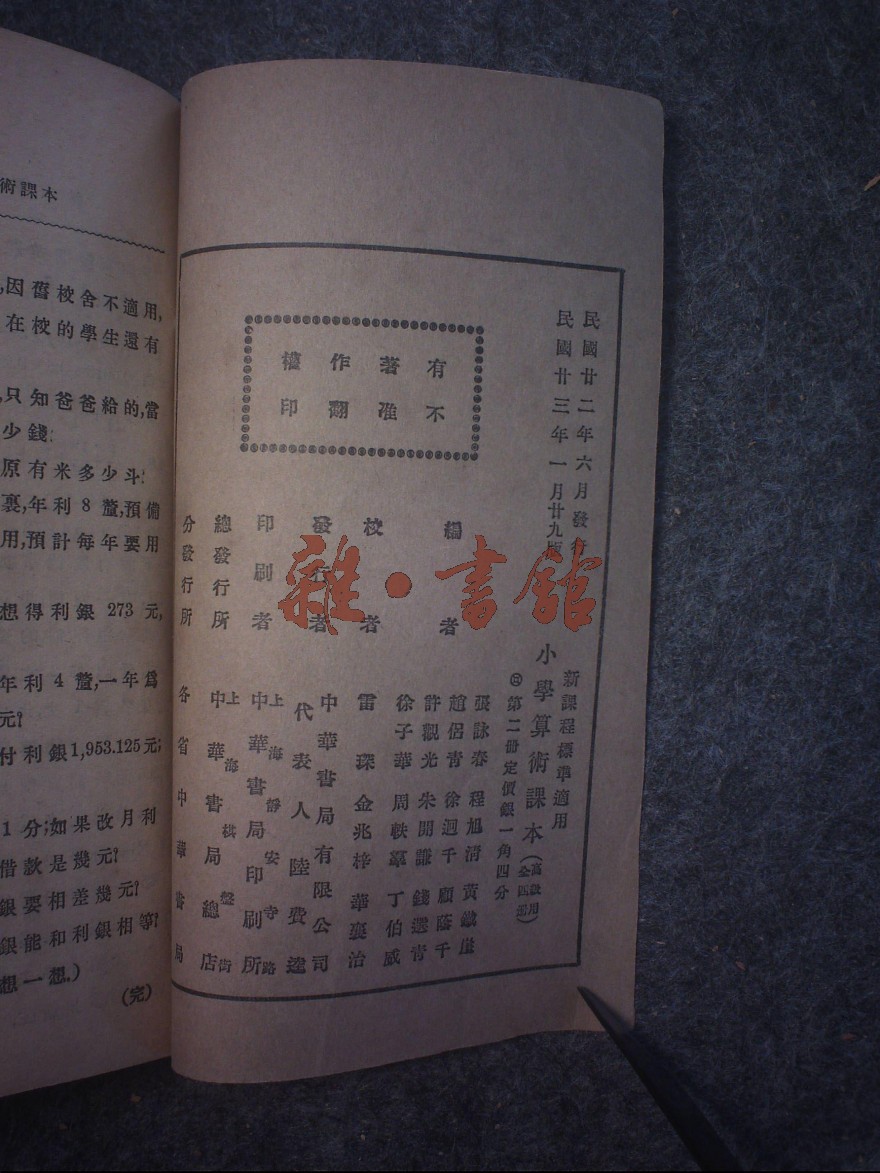 民國廿二年六月發行
民國廿三年一月廿九版
新課程標準適用
小學算術課本(高級用全四册)
第二冊定價銀一角四分
有著作權
不准翻印
編者
張詠春 程旭清 黃
趙侶青 徐迥千 顧蔭千
許觀光 朱開謙 錢選青
徐子華 周 丁伯威
校者
雷琛 金兆梓 華襄治
發行者
中華書局有限公司
代表人 陸費逵
印刷者
上海靜安寺路
中華書局印刷所
總發行所
上海棋盤街
中華書局總店
分發行所
各省中華書局
雜·書館
術課本
,因舊校舍不適用,
在校的學生還有
,只知爸爸給的,當
少錢?
原有米多少斗?
裏,年利8釐,預備
用,預計每年要用
想得利銀273元,
年利4釐,一年爲
元?
付利銀1,953.125元;
1分;如果改月利
借款是幾元?
銀要相差幾元?
銀能和利銀相等?
想一想.)
(完)